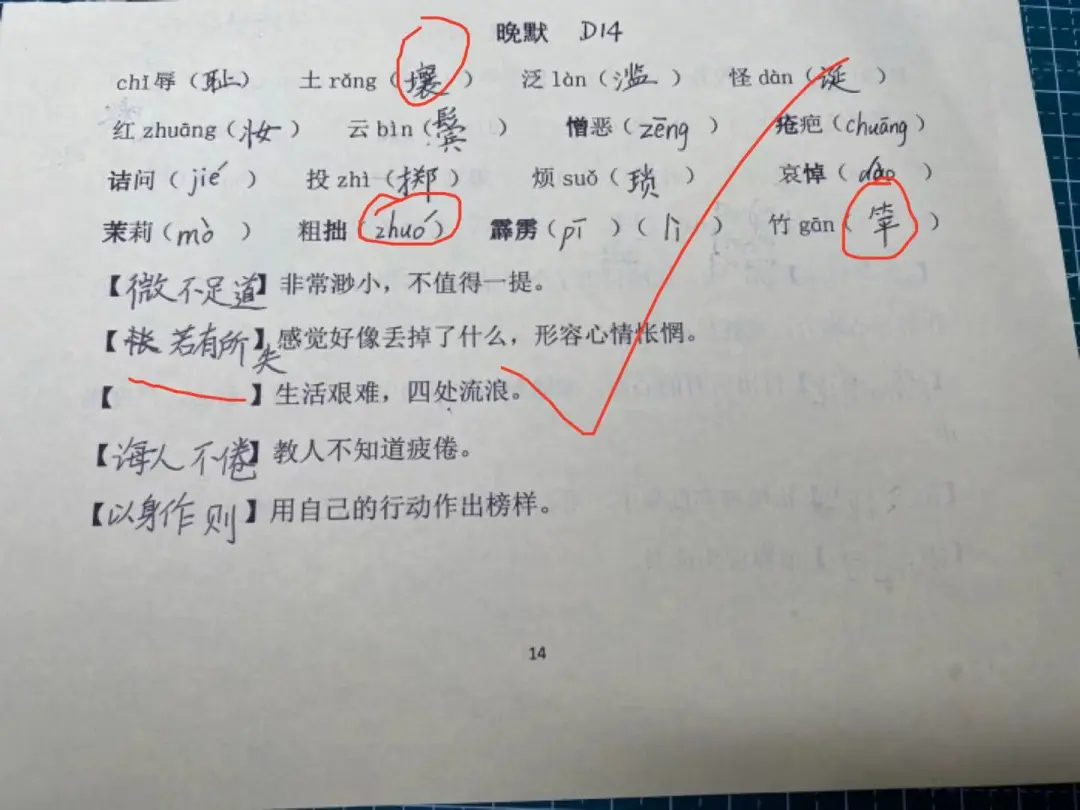 晚默 D14
chǐ 辱（耻） 土 rǎng（壤） 泛 làn（滥） 怪 dàn（诞）
红 zhuāng（妆） 云 bìn（鬓） 憎恶（zēng） 疮疤（chuāng）
诘问（jié） 投 zhì（掷） 烦 suǒ（琐） 哀悼（dào）
茉莉（mò） 粗拙（zhuó） 霹雳（pī）（lì） 竹 gān（竿）
【微不足道】非常渺小，不值得一提。
【怅若有所失】感觉好像丢掉了什么，形容心情怅惘。
【 】生活艰难，四处流浪。
【诲人不倦】教人不知道疲倦。
【以身作则】用自己的行动作出榜样。
14